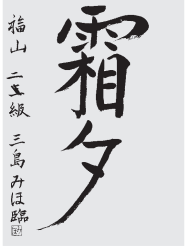 霜夕
福山 二五級 三島みほ臨